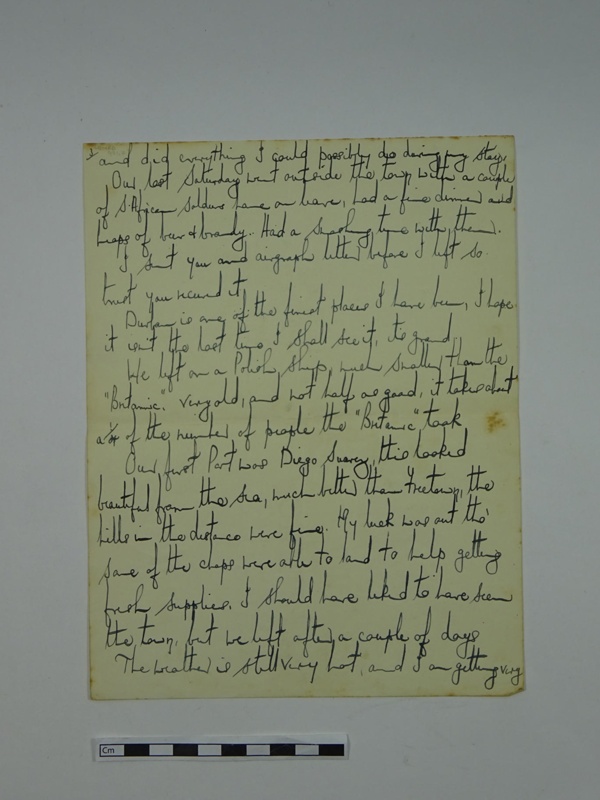 and did everything I could possibly do during my stay.
Our last Saturday went outside the town with a couple
of S. African soldiers home on leave, had a fine dinner and
heaps of beer & brandy. Had a smashing time with them.
I sent you and airgraph letter before I left so
trust you received it.
Durban is one of the finest places I have been, I hope
it isn't the last time I shall see it, its grand.
We left on a Polish ship, much smaller than the
"Britannic." Very old, and not half as good, it takes about
a 1/4 of the number of people the "Britannic" took
Our first Port was Diego Suarez, this looked
beautiful from the sea, much better than Freetown, the
hills in the distance were fine. My luck was out tho'
some of the chaps were able to land to help getting
fresh supplies. I should have liked to have seen
the town, but we left after a couple of days
The weather is still very hot, and I am getting very
Cm